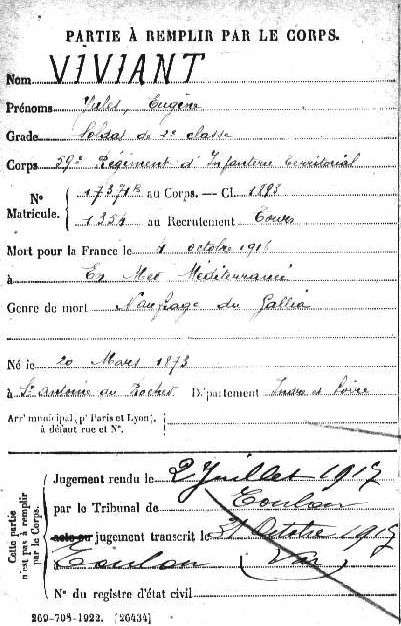 PARTIE À REMPLIR PAR LE CORPS.
Nom VIVIANT
Prénoms Jules, Eugène
Grade Soldat de 2e classe
Corps 59e Régiment d'Infanterie territorial
N° Matricule. 17371 au Corps. — Cl. 1893
1351 au Recrutement Tours
Mort pour la France le octobre 1916
à En Mer Méditerranée
Genre de mort Naufrage du Gallia
Né le 20 Mars 1873
à St Antoine du Rocher Département Indre et Loire
Arrt municipal, pr Paris et Lyon,
à défaut rue et N°.
Cette partie n'est pas à remplir par le Corps.
Jugement rendu le 2 Juillet 1917
par le Tribunal de Toulon
acte ou jugement transcrit le 31 Octobre 1917
Toulon (Var)
N° du registre d'état civil
269-708-1922. [26434]